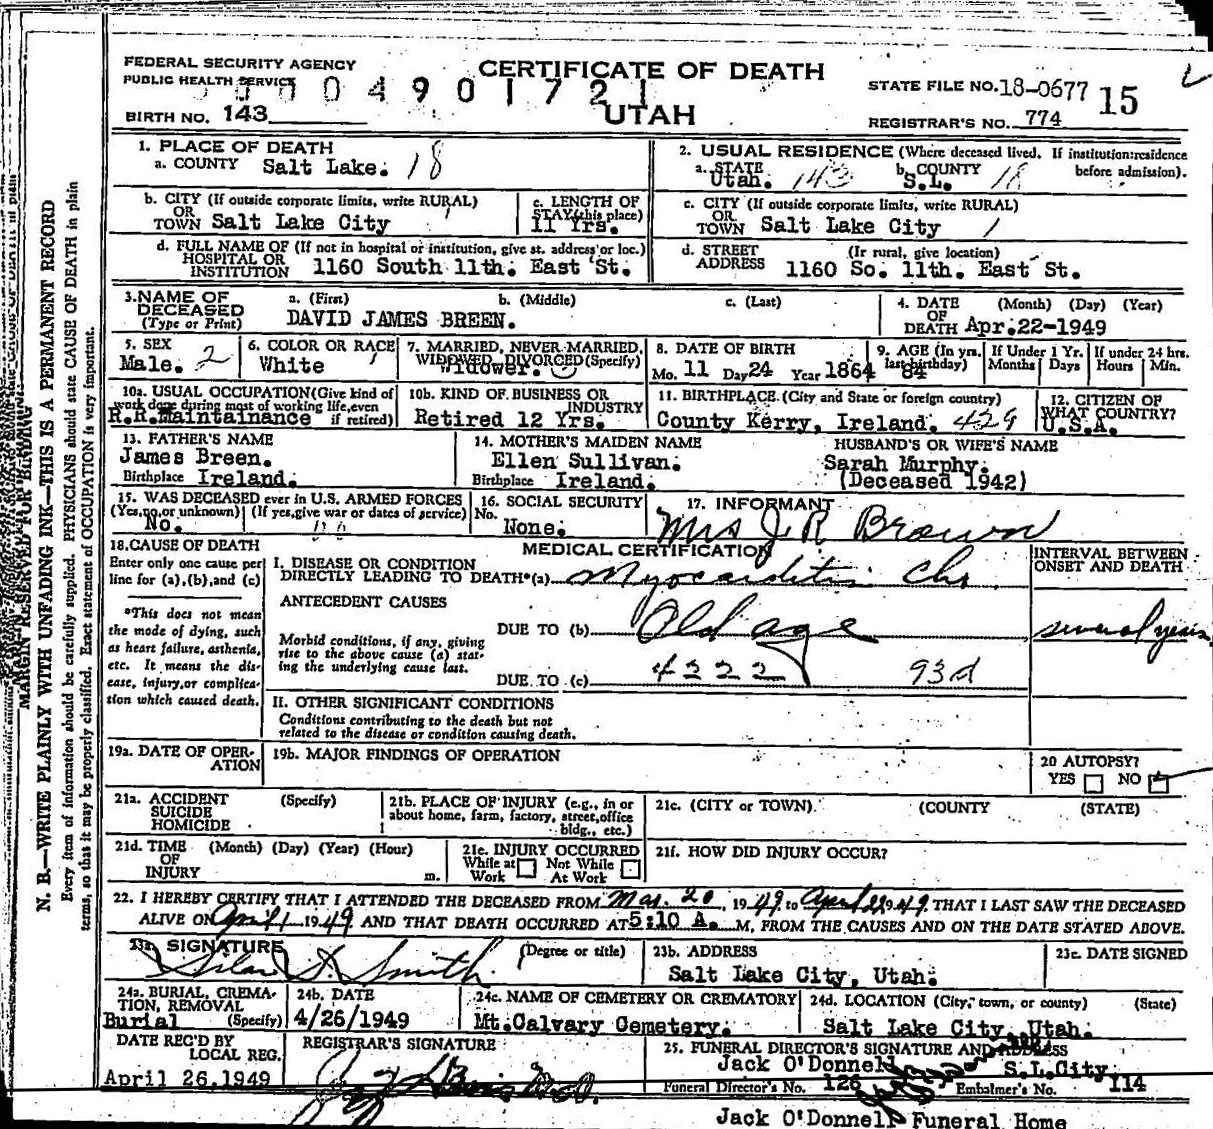 FEDERAL SECURITY AGENCY
PUBLIC HEALTH SERVICE
CERTIFICATE OF DEATH
UTAH
0490 1721
STATE FILE NO. 18-0677 15
REGISTRAR'S NO. 774
BIRTH NO. 143
1. PLACE OF DEATH
a. COUNTY Salt Lake. 18
2. USUAL RESIDENCE (Where deceased lived. If institution: residence before admission).
a. STATE Utah. 143 b. COUNTY S.L. 18
b. CITY (If outside corporate limits, write RURAL)
OR
TOWN Salt Lake City
c. LENGTH OF STAY (this place)
11 Yrs.
c. CITY (If outside corporate limits, write RURAL)
OR
TOWN Salt Lake City 1
d. FULL NAME OF (If not in hospital or institution, give st. address or loc.)
HOSPITAL OR
INSTITUTION 1160 South 11th. East St.
d. STREET (If rural, give location)
ADDRESS 1160 So. 11th. East St.
3. NAME OF DECEASED
(Type or Print)
a. (First) b. (Middle) c. (Last)
DAVID JAMES BREEN.
4. DATE OF DEATH (Month) (Day) (Year)
Apr. 22-1949
5. SEX
Male. 2
6. COLOR OR RACE
White 1
7. MARRIED, NEVER MARRIED, WIDOWED, DIVORCED (Specify)
Widower.
8. DATE OF BIRTH
Mo. 11 Day 24 Year 1864
9. AGE (In yrs. last birthday)
84
If Under 1 Yr.
Months Days
If under 24 hrs.
Hours Min.
10a. USUAL OCCUPATION (Give kind of work done during most of working life, even if retired)
R.R. Maintainance
10b. KIND OF BUSINESS OR INDUSTRY
Retired 12 Yrs.
11. BIRTHPLACE (City and State or foreign country)
County Kerry, Ireland. 429
12. CITIZEN OF WHAT COUNTRY?
U.S.A.
13. FATHER'S NAME
James Breen.
Birthplace Ireland.
14. MOTHER'S MAIDEN NAME
Ellen Sullivan.
Birthplace Ireland.
HUSBAND'S OR WIFE'S NAME
Sarah Murphy.
(Deceased 1942)
15. WAS DECEASED ever in U.S. ARMED FORCES
(Yes, no, or unknown) (If yes, give war or dates of service)
No.
16. SOCIAL SECURITY
No.
None.
17. INFORMANT
Mrs J R Brown
18. CAUSE OF DEATH
Enter only one cause per line for (a), (b), and (c)
*This does not mean the mode of dying, such as heart failure, asthenia, etc. It means the disease, injury, or complication which caused death.
MEDICAL CERTIFICATION
INTERVAL BETWEEN ONSET AND DEATH
I. DISEASE OR CONDITION
DIRECTLY LEADING TO DEATH*(a) Myocarditis Chr
ANTECEDENT CAUSES
DUE TO (b) Old age several years
Morbid conditions, if any, giving rise to the above cause (a) stating the underlying cause last.
DUE TO (c) 4222 93d
II. OTHER SIGNIFICANT CONDITIONS
Conditions contributing to the death but not related to the disease or condition causing death.
19a. DATE OF OPERATION
19b. MAJOR FINDINGS OF OPERATION
20 AUTOPSY?
YES NO
21a. ACCIDENT (Specify)
SUICIDE
HOMICIDE
21b. PLACE OF INJURY (e.g., in or about home, farm, factory, street, office bldg., etc.)
21c. (CITY or TOWN) (COUNTY) (STATE)
21d. TIME (Month) (Day) (Year) (Hour)
OF
INJURY m.
21e. INJURY OCCURRED
While at Work Not While At Work
21f. HOW DID INJURY OCCUR?
22. I HEREBY CERTIFY THAT I ATTENDED THE DECEASED FROM Mar. 20, 1949 to April 22 1949 THAT I LAST SAW THE DECEASED
ALIVE ON April 1 1949 AND THAT DEATH OCCURRED AT 5:10 A. M, FROM THE CAUSES AND ON THE DATE STATED ABOVE.
23a. SIGNATURE (Degree or title)
Silas S. Smith
23b. ADDRESS
Salt Lake City, Utah.
23c. DATE SIGNED
24a. BURIAL, CREMATION, REMOVAL (Specify)
Burial
24b. DATE
4/26/1949
24c. NAME OF CEMETERY OR CREMATORY
Mt. Calvary Cemetery.
24d. LOCATION (City, town, or county) (State)
Salt Lake City, Utah.
DATE REC'D BY LOCAL REG.
April 26, 1949
REGISTRAR'S SIGNATURE
25. FUNERAL DIRECTOR'S SIGNATURE AND ADDRESS
Jack O'Donnell S.L.City
Funeral Director's No. 126 Embalmer's No. 114
Jack O'Donnell Funeral Home
MARGIN RESERVED FOR BINDING
N. B.—WRITE PLAINLY WITH UNFADING INK—THIS IS A PERMANENT RECORD
Every item of information should be carefully supplied. PHYSICIANS should state CAUSE OF DEATH in plain
terms, so that it may be properly classified. Exact statement of OCCUPATION is very important.